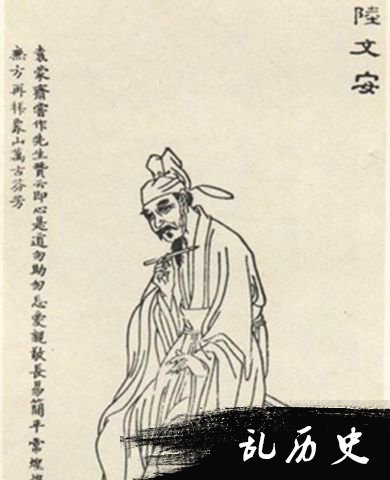 陸文安
袁蒙齋嘗作先生贊云即心是道勿助勿忘愛親敬長易簡平常煌
無方再拜象山萬古芬芳
乱历史